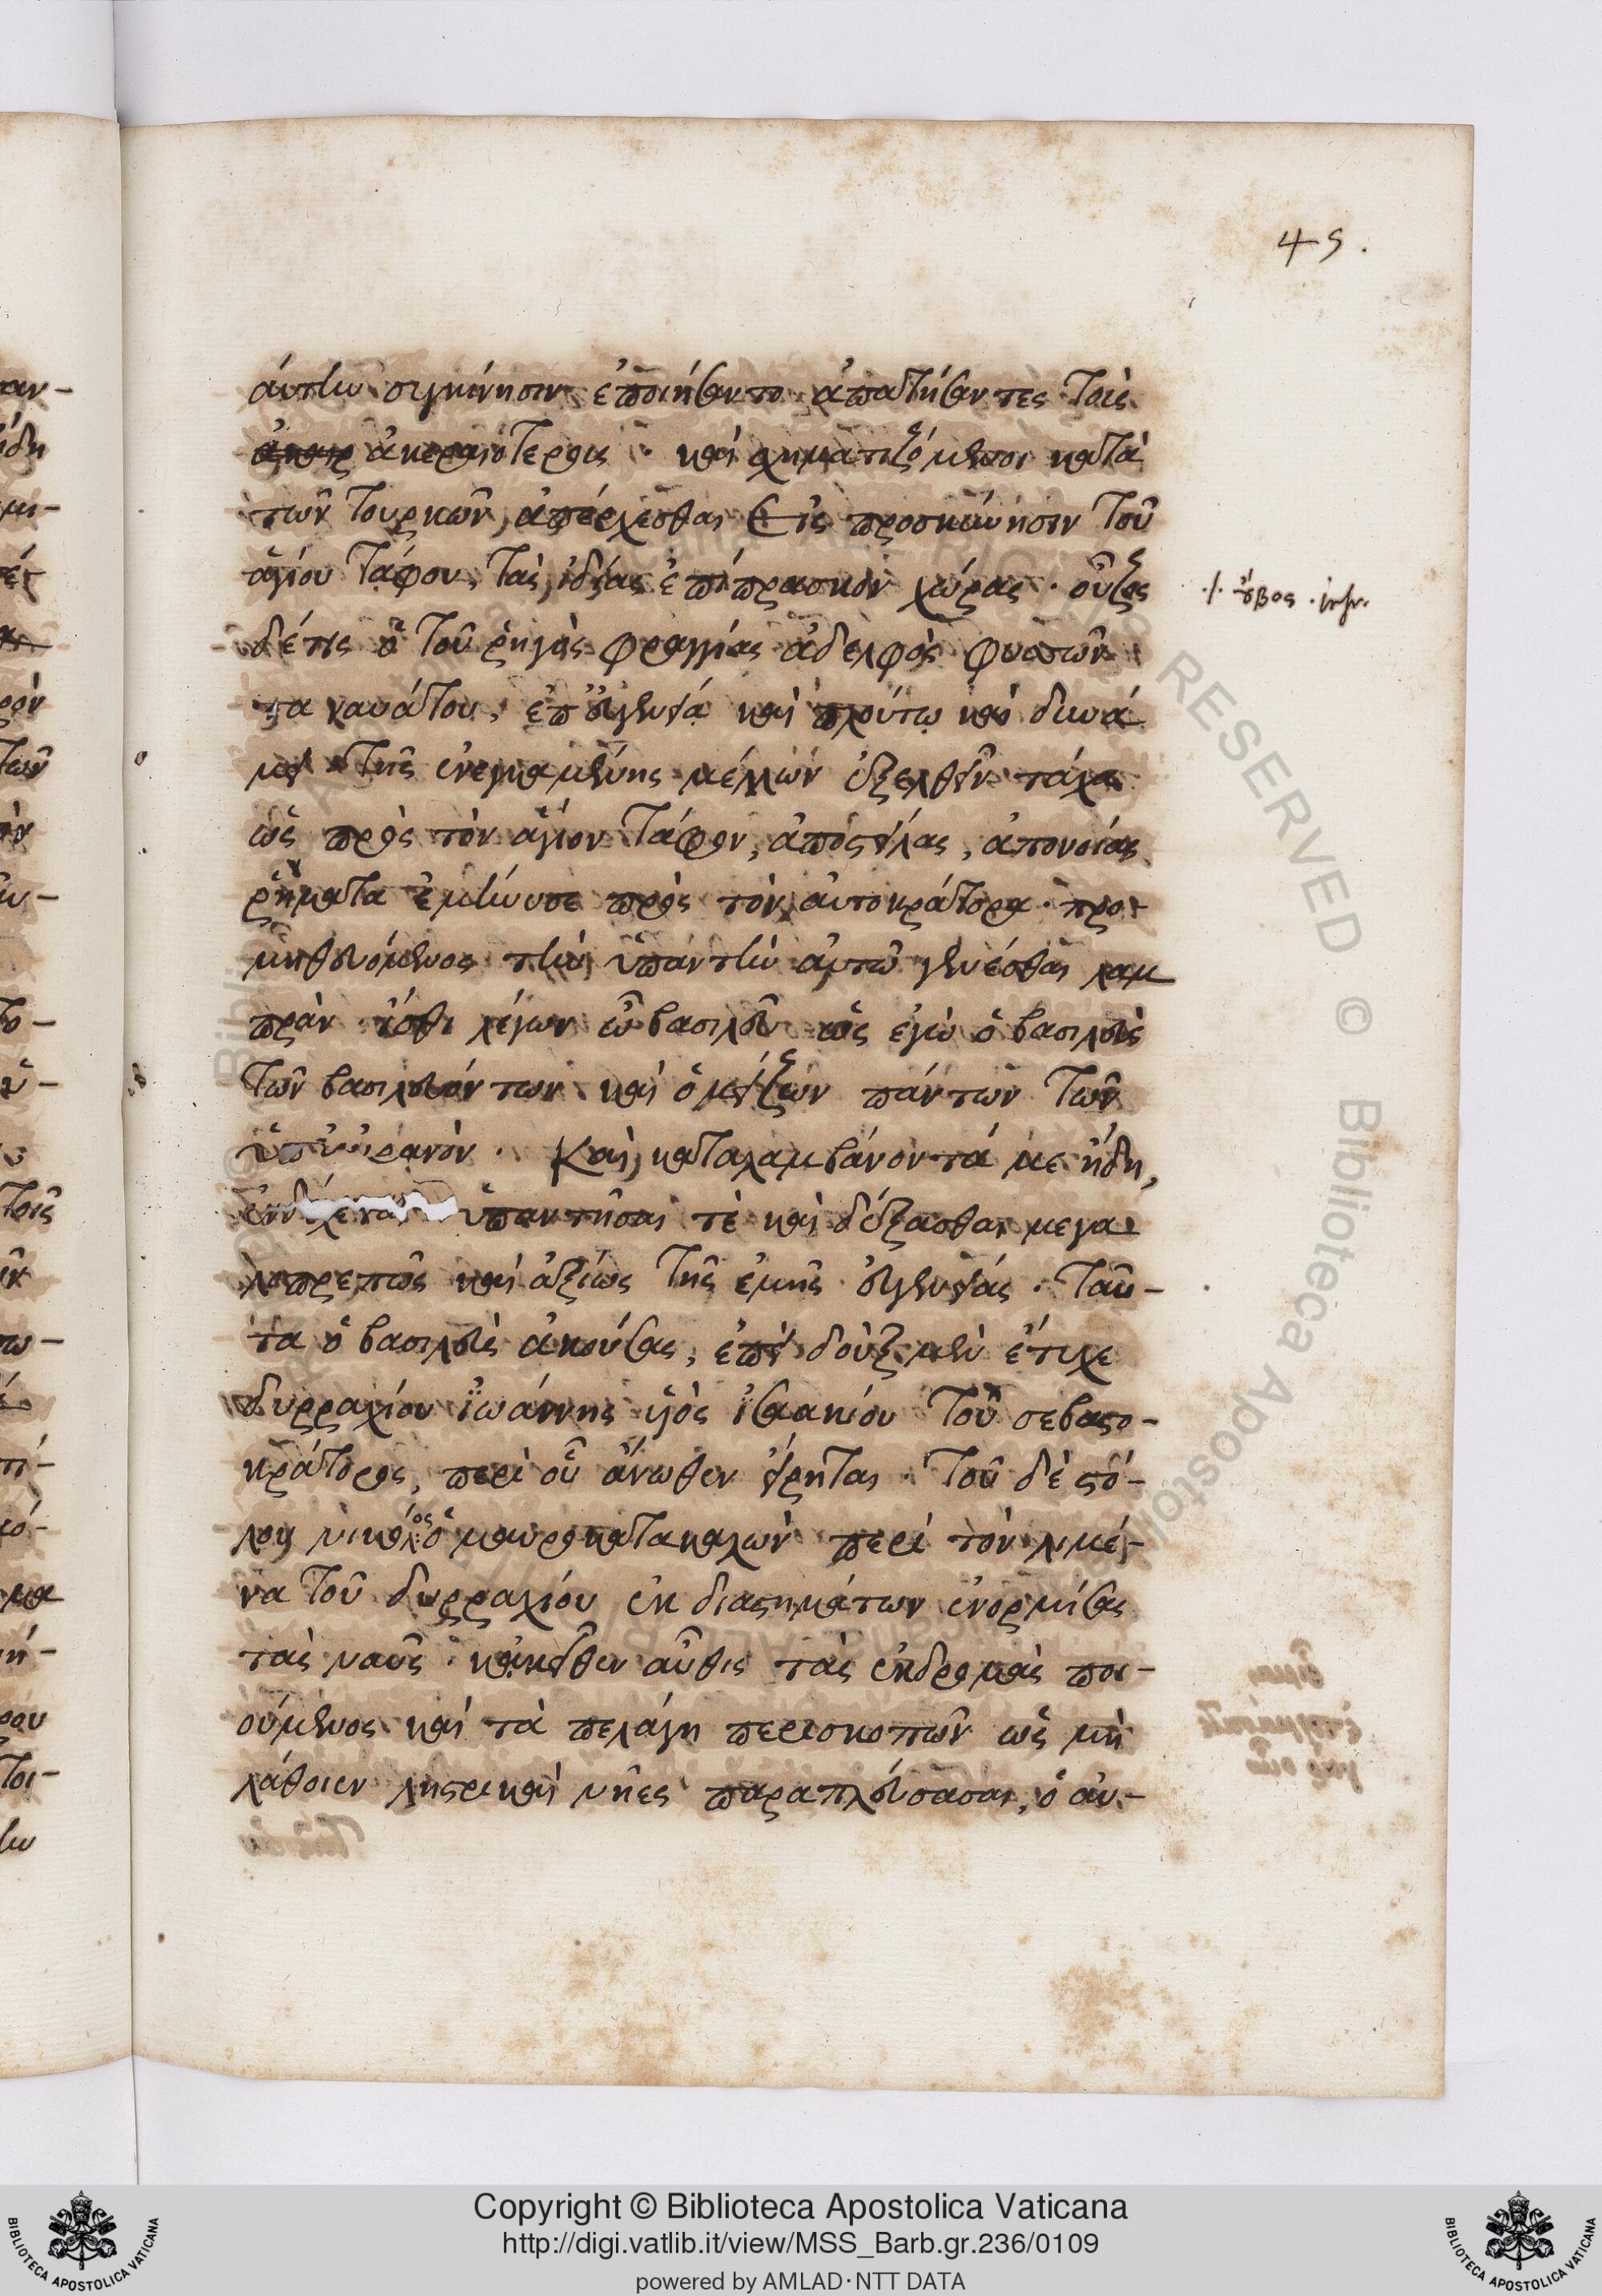 45.
αὐτὴν συγκίνησιν ἐποιήσαντο ἀπατήσαντες τοὺς
ἀκεραιοτέρους · καὶ σχηματιζόμενοι κατὰ
τῶν τουρκῶν ἀπέρχεσθαι εἰς προσκύνησιν τοῦ
ἁγίου τάφου, τὰς ἰδίας ἐπίπρασκον χώρας · οὖζος
·/· οὖβος
δέ τις ὁ τοῦ ῥηγὸς φραγγίας ἀδελφὸς φυσῶν
τα ναυάτου, ἐπ' εὐγενείᾳ καὶ πλούτῳ καὶ δυνά
μει τῆς ἐνεγκαμένης μέλλων ἐξελθεῖν τάχα
ὡς πρὸς τὸν ἅγιον τάφον, ἀποστείλας, ἀπονοίας
ῥήματα ἐμήνυσε πρὸς τὸν αὐτοκράτορα · προ-
μηθευόμενος τὴν ὑπαντὴν αὐτῷ γενέσθαι λαμ
πράν ἴσθι λέγων ὦ βασιλεῦ ὡς ἐγὼ ὁ βασιλεὺς
τῶν βασιλευόντων καὶ ὁ μείζων πάντων τῶν
ὑπ' οὐρανόν · Καὶ καταλαμβάνοντά με ἤδη,
ἐνδέχεται ὑπαντῆσαι τὲ καὶ δέξασθαι μεγα
λοπρεπῶς καὶ ἀξίως τῆς ἐμῆς εὐγενείας · ταῦ-
τα ὁ βασιλεὺς ἀκούσας, ἐπεὶ δοὺξ μὲν ἔτυχε
δυρραχίου ἰωάννης υἱὸς ἰσαακίου τοῦ σεβαστο-
κράτορος, περὶ οὗ ἄνωθεν εἴρηται · τοῦ δὲ στό-
λου νικόλαος ὁ μαυροκατακαλὼν περὶ τὸν λιμέ-
να τοῦ δυρραχίου ἐκ διαστημάτων ἐνορμίσας
τὰς ναῦς · κἀκεῖθεν αὖθις τὰς ἐκδρομὰς ποι-
ούμενος καὶ τὰ πελάγη περισκοπῶν ὡς μὴ
λάθοιεν λῃστρικαὶ νῆες παραπλεύσασαι, ὁ αὐ-
Copyright © Biblioteca Apostolica Vaticana
http://digi.vatlib.it/view/MSS_Barb.gr.236/0109
powered by AMLAD·NTT DATA